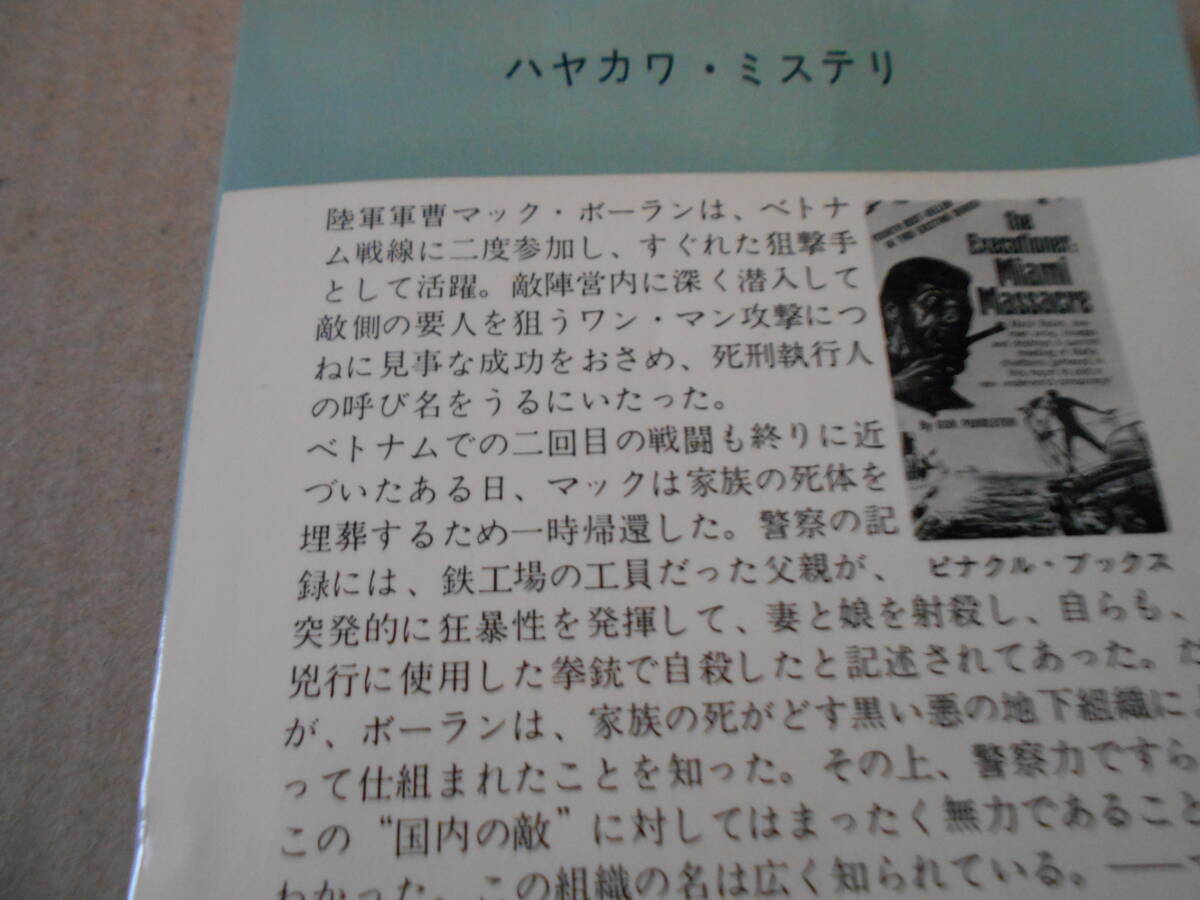 ハヤカワ・ミステリ
陸軍軍曹マック・ボーランは、ベトナ
ム戦線に二度参加し、すぐれた狙撃手
として活躍。敵陣営内に深く潜入して
敵側の要人を狙うワン・マン攻撃につ
ねに見事な成功をおさめ、死刑執行人
の呼び名をうるにいたった。
ベトナムでの二回目の戦闘も終りに近
づいたある日、マックは家族の死体を
埋葬するため一時帰還した。警察の記
録には、鉄工場の工員だった父親が、
突発的に狂暴性を発揮して、妻と娘を射殺し、自らも、
兇行に使用した拳銃で自殺したと記述されてあった。だ
が、ボーランは、家族の死がどす黒い悪の地下組織に
って仕組まれたことを知った。その上、警察力ですら
この“国内の敵”に対してはまったく無力であること
わかった。この組織の名は広く知られている。——
The
Executioner:
Miami
Massacre
By DON PENDLETON
ピナクル・ブックス